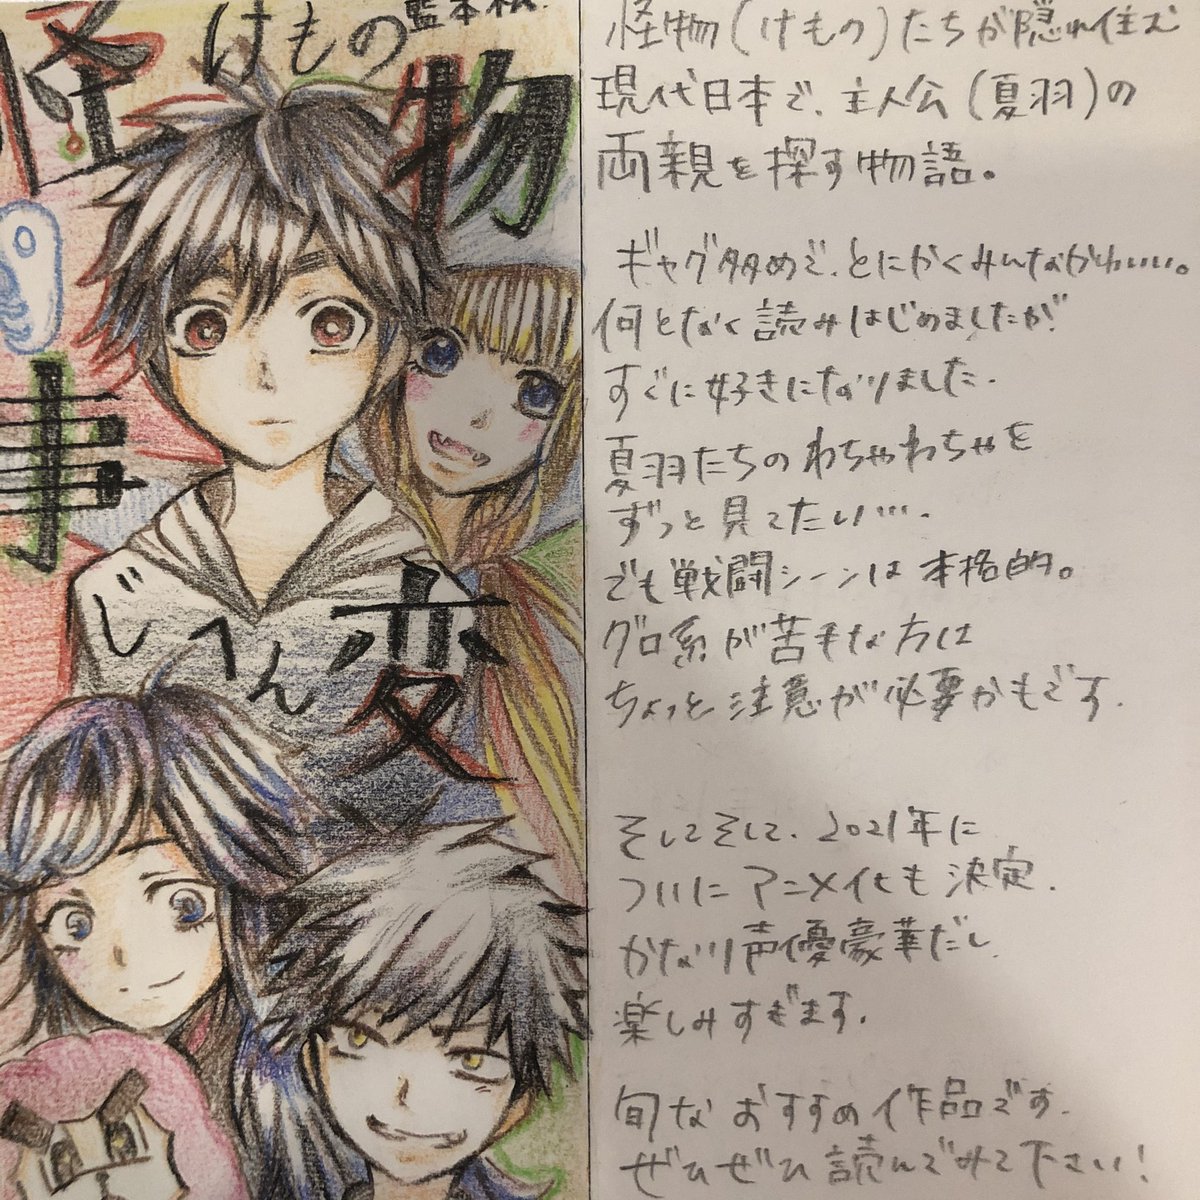 怪物
けもの
藍本松
事変
じへん
怪物(けもの)たちが隠れ住む
現代日本で、主人公(夏羽)の
両親を探す物語。
ギャグ多めで、とにかくみんなかわいい。
何となく読みはじめましたが
すぐに好きになりました.
夏羽たちのわちゃわちゃを
ずっと見てたい….
でも戦闘シーンは本格的。
グロ系が苦手な方は
ちょっと注意が必要かもです.
そしてそして、2021年に
ついにアニメ化も決定.
かなり声優豪華だし
楽しみすぎます.
旬なおすすめ作品です.
ぜひぜひ読んでみて下さい!